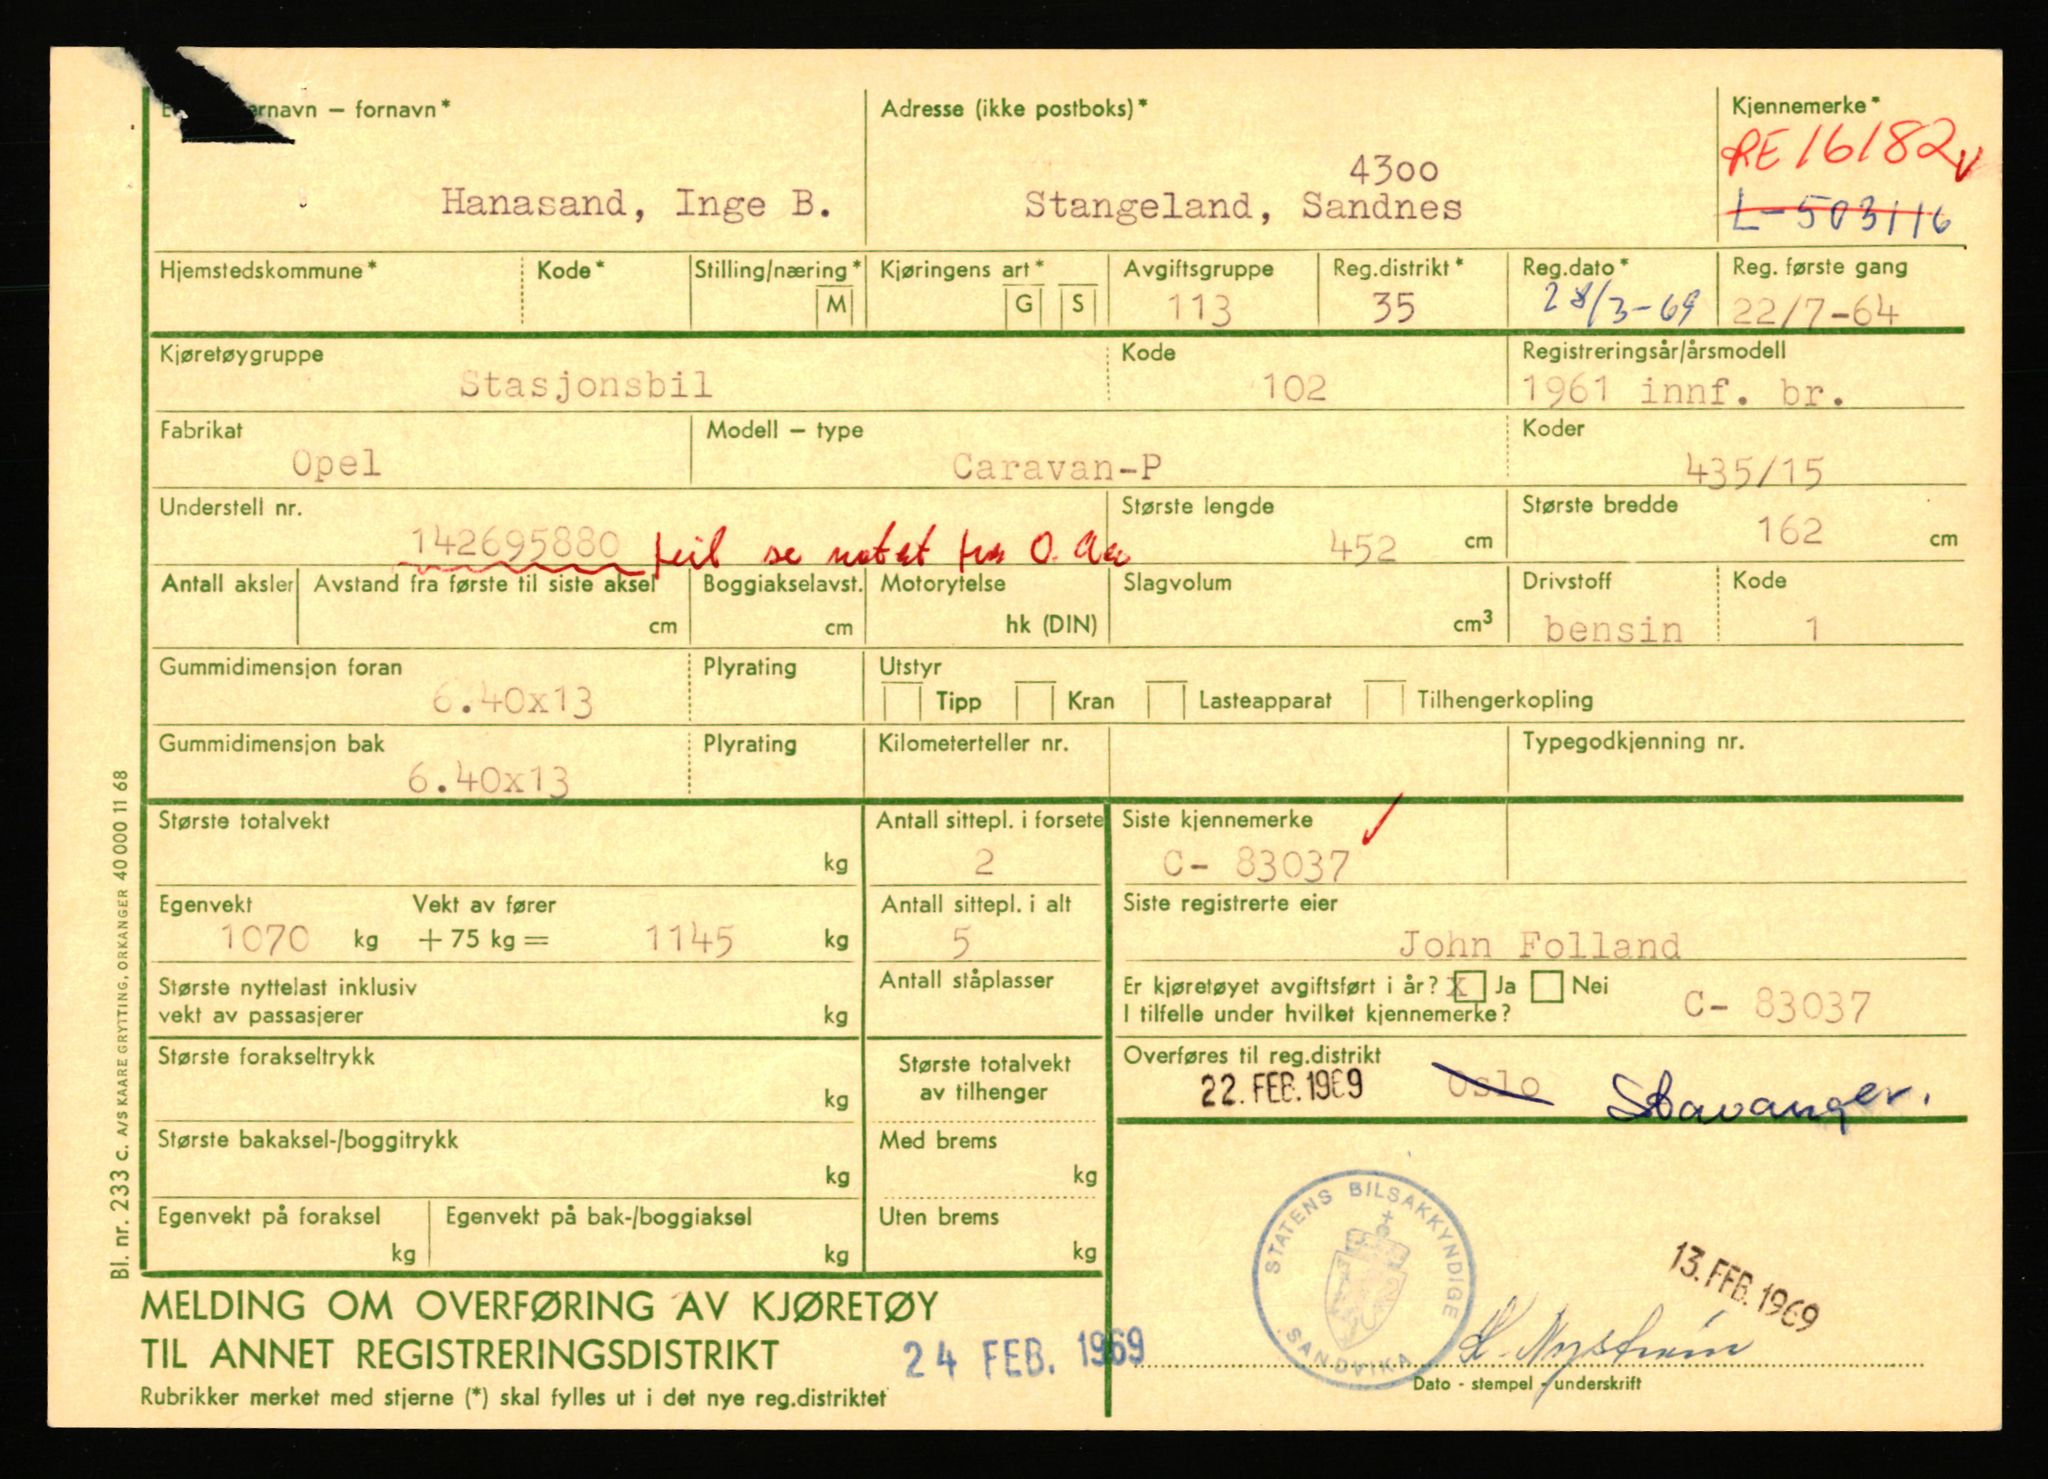 ernavn – fornavn*
Hanasand, Inge B.
Adresse (ikke postboks)*
4300
Stangeland, Sandnes
Kjennemerke*
RE 16182 v
L-503116
Hjemstedskommune*
Kode*
Stilling/næring*
M
Kjøringens art*
G S
Avgiftsgruppe
113
Reg.distrikt*
35
Reg.dato*
28/3-69
Reg. første gang
22/7-64
Kjøretøygruppe
Stasjonsbil
Kode
102
Registreringsår/årsmodell
1961 innf. br.
Fabrikat
Opel
Modell – type
Caravan-P
Koder
435/15
Understell nr.
142695880 feil se notat fra O.
Største lengde
452 cm
Største bredde
162 cm
Antall aksler
Avstand fra første til siste aksel
cm
Boggiakselavst.
cm
Motorytelse
hk (DIN)
Slagvolum
cm3
Drivstoff
bensin
Kode
1
Gummidimensjon foran
6.40x13
Plyrating
Utstyr
Tipp Kran Lasteapparat Tilhengerkopling
Gummidimensjon bak
6.40x13
Plyrating
Kilometerteller nr.
Typegodkjenning nr.
Største totalvekt
kg
Antall sittepl. i forsete
2
Siste kjennemerke
C- 83037
Egenvekt
1070 kg
Vekt av fører
+ 75 kg = 1145 kg
Antall sittepl. i alt
5
Siste registrerte eier
John Folland
Største nyttelast inklusiv
vekt av passasjerer
kg
Antall ståplasser
Er kjøretøyet avgiftsført i år? X Ja Nei
I tilfelle under hvilket kjennemerke?
C- 83037
Største forakseltrykk
kg
Største totalvekt
av tilhenger
Overføres til reg.distrikt
22. FEB. 1969 Oslo Stavanger.
Største bakaksel-/boggitrykk
kg
Med brems
kg
Egenvekt på foraksel
kg
Egenvekt på bak-/boggiaksel
kg
Uten brems
kg
STATENS BILSAKKYNDIGE
SANDVIKA
13. FEB. 1969
Nystrøm
Dato - stempel - underskrift
MELDING OM OVERFØRING AV KJØRETØY
TIL ANNET REGISTRERINGSDISTRIKT
24 FEB. 1969
Rubrikker merket med stjerne (*) skal fylles ut i det nye reg.distriktet
Bl. nr. 233 C. A/S KAARE GRYTTING, ORKANGER 40 000 11 68